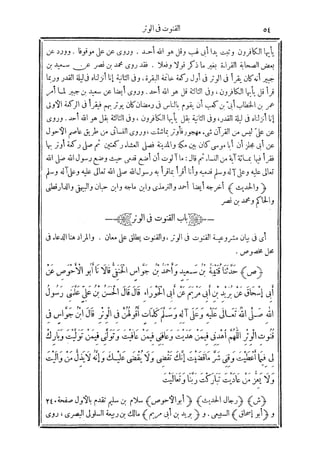 ٥٤ القنوت فى الوتر
يأيها الكافرون وتبت يدا أبى لهب وقل هو الله أحد . وروى عن على موقوفا . وورد عن
بعض الصحابة القراءة بغير ما ذكر قولا وفعلا . فقد روى محمد بن نصر عن سعيد بن
جبير أنه كان يقرأ فى الوتر فى أول ركعة خاتمة البقرة، وفى الثانية إنا أنزلناه فى ليلة القدر وربما
قرأ قل يأيها الكافرون، وفى الثالثة قل هو الله أحد . وروى أيضا عن سعيد بن جبير لما أمر
عمر بن الخطاب أبىّ بن كعب أن يقوم بالناس فى رمضان كان يوتر بهم فيقرأ فى الركعة الأولى
إنا أنزلناه فى ليلة القدر، وفى الثانية بقل يأيها الكافرون، وفى الثالثة بقل هو الله أحد . وروى
عن على ليس من القرآن شىء مهجور فأوتر بما شئت، وروى النسائى من طريق عاصم الأحول
عن أبى مجلز أن أبا موسى كان بين مكة والمدينة فصلى العشاء ركعتين ثم صلى ركعة أوتر بها
فقرأ فيها بمائة آية من النساء، ثم قال: ما ألوت أن أضع قدمى حيث وضع رسول الله صلى الله
تعالى عليه وعلى آله وسلم قدميه وأنا أقرأ بما قرأ به رسول الله صلى الله تعالى عليه وعلى آله وسلم
﴿والحديث﴾ أخرجه أيضا أحمد والترمذى وابن ماجه وابن حبان والبيهقى والدارقطنى
والحاكم ومحمد بن نصر
باب القنوت فى الوتر
أى فى بيان مشروعية القنوت فى الوتر، والقنوت يطلق على معان . والمراد هنا الدعاء فى
محل مخصوص .
﴿ص﴾ حَدَّثَنَا قُتَيْبَةُ بْنُ سَعِيدٍ وَأَحْمَدُ بْنُ جَوَّاسٍ الْحَنَفِيُّ قَالَا نَا أَبُو الْأَحْوَصِ عَنْ
أَبِي إِسْحَاقَ عَنْ بُرَيْدِ بْنِ أَبِي مَرْيَمَ عَنْ أَبِي الْحَوْرَاءِ قَالَ قَالَ الْحَسَنُ بْنُ عَلِيٍّ عَلَّمَنِي رَسُولُ
اللهِ صَلَّى اللهُ تَعَالَى عَلَيْهِ وَعَلَى آلِهِ وَسَلَّمَ كَلِمَاتٍ أَقُولُهُنَّ فِي الْوِتْرِ قَالَ ابْنُ جَوَّاسٍ فِي
قُنُوتِ الْوِتْرِ اللَّهُمَّ اهْدِنِي فِيمَنْ هَدَيْتَ وَعَافِنِي فِيمَنْ عَافَيْتَ وَتَوَلَّنِي فِيمَنْ تَوَلَّيْتَ وَبَارِكْ
لِي فِيمَا أَعْطَيْتَ وَقِنِي شَرَّ مَا قَضَيْتَ إِنَّكَ تَقْضِي وَلَا يُقْضَى عَلَيْكَ وَإِنَّهُ لَا يَذِلُّ مَنْ وَالَيْتَ
وَلَا يَعِزُّ مَنْ عَادَيْتَ تَبَارَكْتَ رَبَّنَا وَتَعَالَيْتَ
﴿ش﴾ ﴿رجال الحديث﴾ ﴿أبو الأحوص﴾ سلام بن سليم تقدم بالأول صفحة ٢٤٠
و ﴿أبو إسحاق﴾ السبيعى . و ﴿بريد بن أبى مريم﴾ مالك بن ربيعة السلولى البصرى، روى